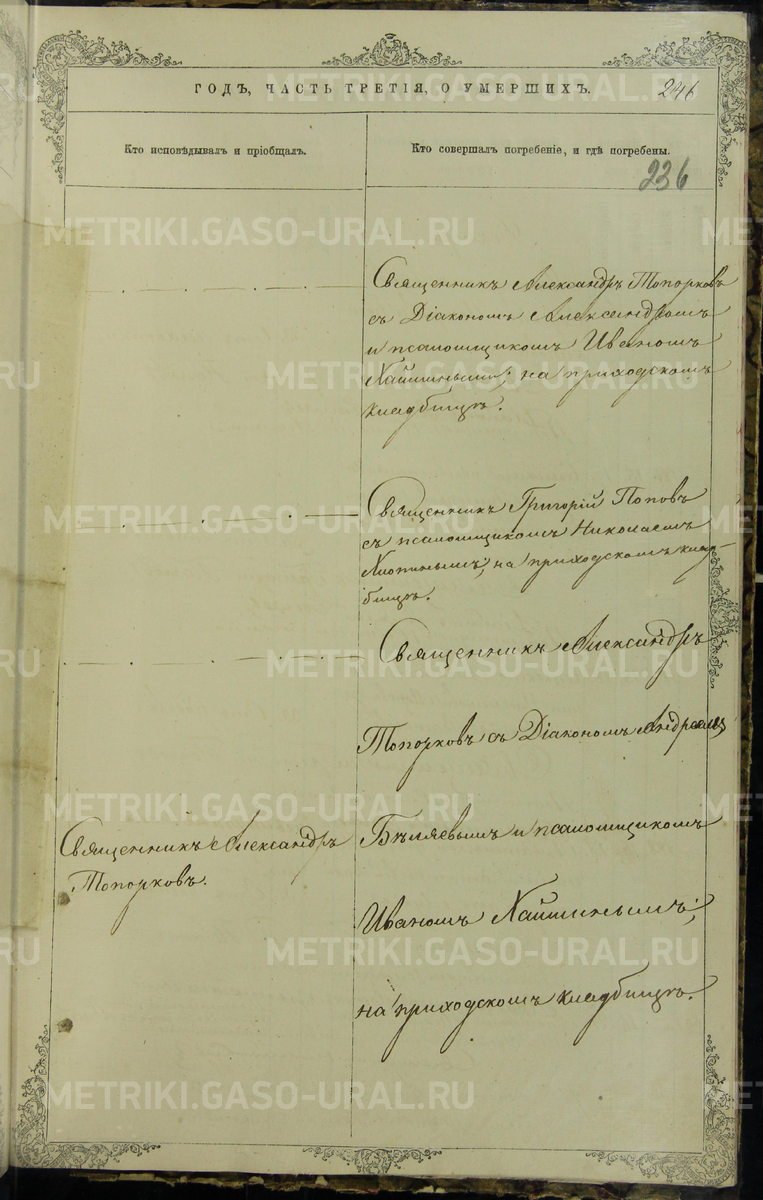 ГОДЪ, ЧАСТЬ ТРЕТІЯ, О УМЕРШИХЪ.
246
Кто исповѣдывалъ и пріобщалъ.
Кто совершалъ погребеніе, и гдѣ погребены.
236
Священникъ Александръ Топорковъ
съ Діакономъ Александромъ
и псаломщикомъ Иваномъ
на приходскомъ
кладбищѣ.
Священникъ Григорій Поповъ
съ псаломщикомъ Николаемъ
на приходскомъ клад-
бищѣ.
Священникъ Александръ
Топорковъ съ Діакономъ Андреемъ
Священникъ Александръ
Топорковъ.
Бѣляевымъ и псаломщикомъ
Иваномъ
на приходскомъ кладбищѣ.
METRIKI.GASO-URAL.RU